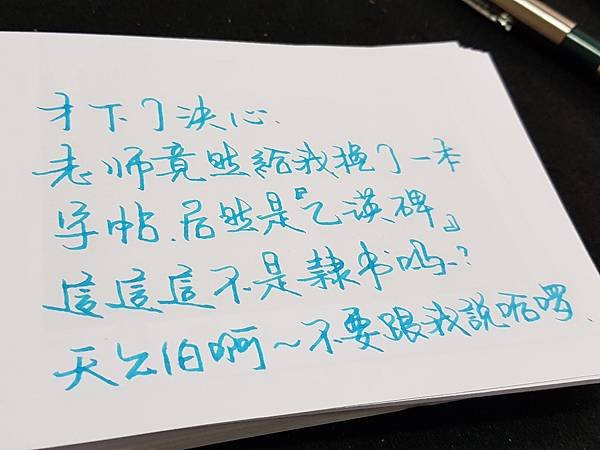 才下了決心.
老师竟然給我換了一本
字帖.居然是『乙瑛碑』
這這這不是隸书吗~?
天公伯啊~不要跟我說呃囉.